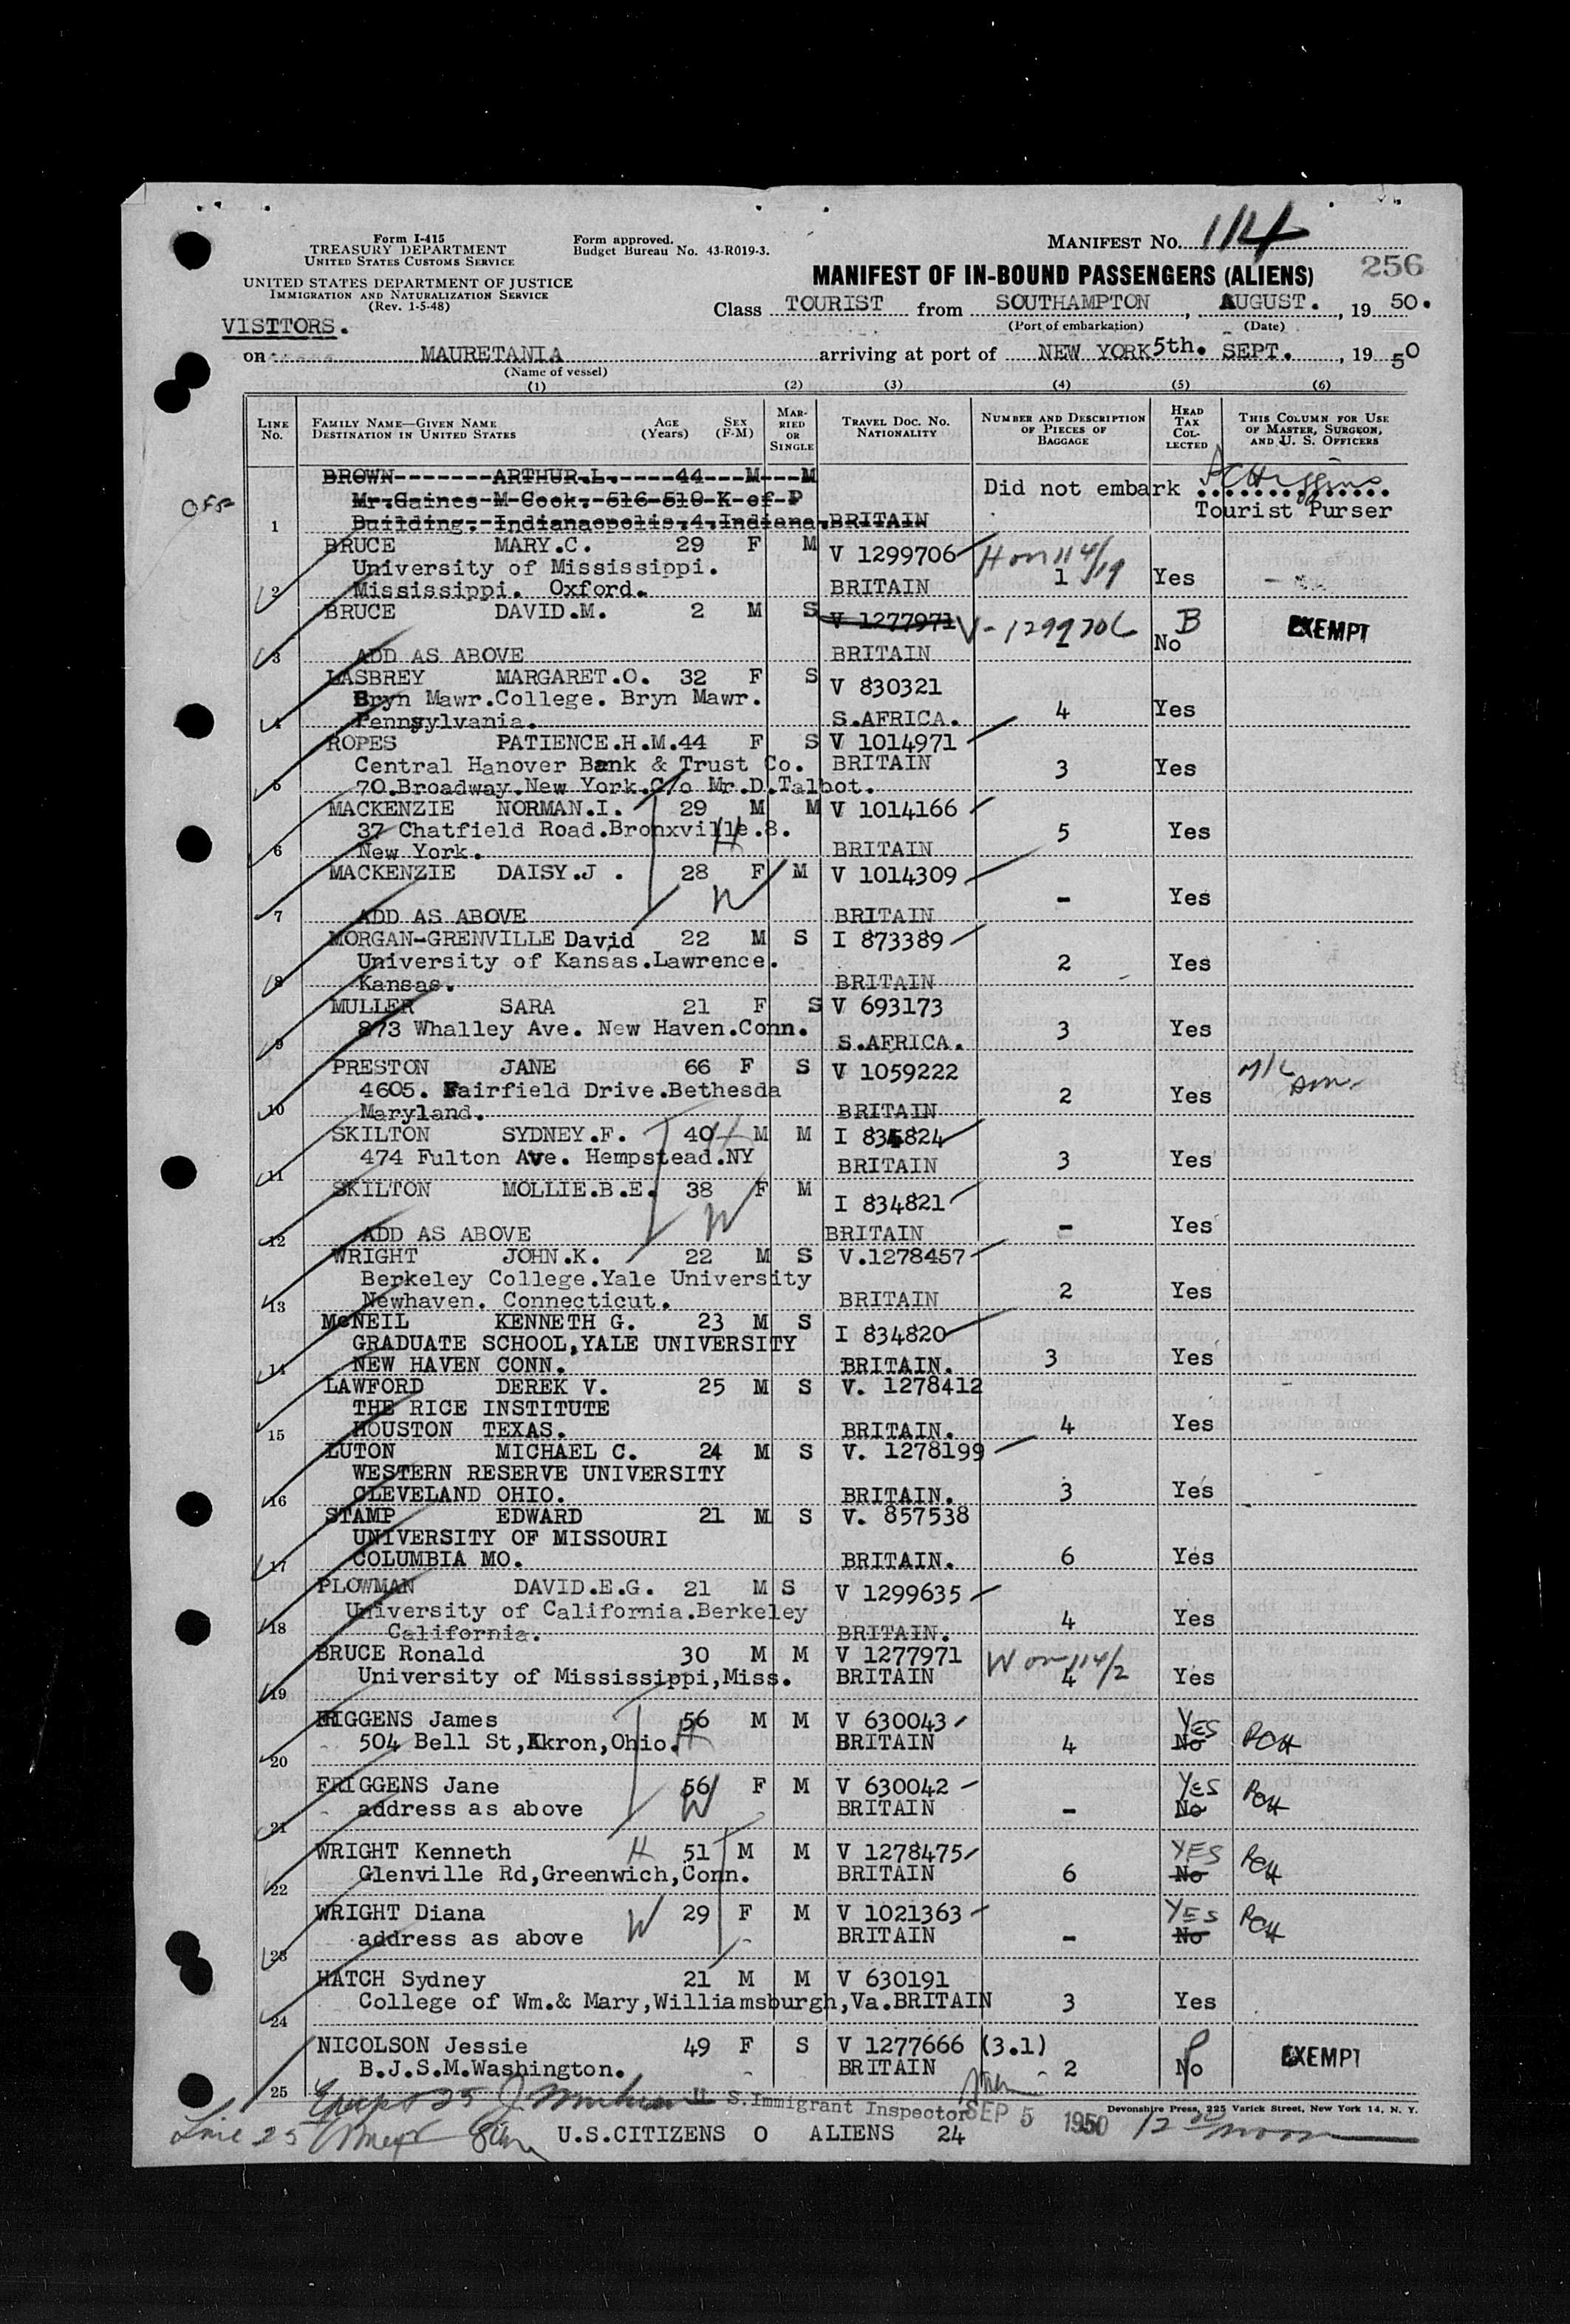 Form I-415
TREASURY DEPARTMENT
UNITED STATES CUSTOMS SERVICE
Form approved.
Budget Bureau No. 43-R019-3.
MANIFEST NO. 114
256
UNITED STATES DEPARTMENT OF JUSTICE
IMMIGRATION AND NATURALIZATION SERVICE
(Rev. 1-5-48)
MANIFEST OF IN-BOUND PASSENGERS (ALIENS)
VISITORS.
Class TOURIST from SOUTHAMPTON, AUGUST. , 19 50.
(Port of embarkation) (Date)
on MAURETANIA arriving at port of NEW YORK 5th. SEPT. , 19 50
(Name of vessel)
(1) (2) (3) (4) (5) (6)
LINE NO. FAMILY NAME—GIVEN NAME DESTINATION IN UNITED STATES AGE (Years) SEX (F-M) MARRIED OR SINGLE TRAVEL DOC. NO. NATIONALITY NUMBER AND DESCRIPTION OF PIECES OF BAGGAGE HEAD TAX COLLECTED THIS COLUMN FOR USE OF MASTER, SURGEON, AND U. S. OFFICERS
BROWN-------ARTHUR.L.----44---M---M
Mr.Gaines-M-Cook.-516-519-K-of-P Did not embark
1 Building.-Indianaopolis.4.Indiana.BRITAIN Tourist Purser
BRUCE MARY.C. 29 F M V 1299706 H on 114/19
University of Mississippi. 1 Yes
2 Mississippi. Oxford. BRITAIN
BRUCE DAVID.M. 2 M S V 1277971 V-1299706 B EXEMPT
3 ADD AS ABOVE BRITAIN No
LASBREY MARGARET.O. 32 F S V 830321
Bryn Mawr.College. Bryn Mawr. 4 Yes
4 Pennsylvania. S.AFRICA.
ROPES PATIENCE.H.M.44 F S V 1014971
Central Hanover Bank & Trust Co. BRITAIN 3 Yes
5 70.Broadway.New York.C/o Mr.D.Talbot.
MACKENZIE NORMAN.I. 29 M M V 1014166
37 Chatfield Road.Bronxville.8. H 5 Yes
6 New York. BRITAIN
MACKENZIE DAISY.J . 28 F M V 1014309
W - Yes
7 ADD AS ABOVE BRITAIN
MORGAN-GRENVILLE David 22 M S I 873389
University of Kansas.Lawrence. 2 Yes
8 Kansas. BRITAIN
MULLER SARA 21 F S V 693173
873 Whalley Ave. New Haven.Conn. 3 Yes
9 S.AFRICA.
PRESTON JANE 66 F S V 1059222
4605. Fairfield Drive.Bethesda 2 Yes
10 Maryland. BRITAIN
SKILTON SYDNEY.F. 40 H M M I 834824
11 474 Fulton Ave. Hempstead.NY BRITAIN 3 Yes
SKILTON MOLLIE.B.E. 38 F M I 834821
W - Yes
12 ADD AS ABOVE BRITAIN
WRIGHT JOHN.K. 22 M S V.1278457
Berkeley College.Yale University 2 Yes
13 Newhaven. Connecticut. BRITAIN
McNEIL KENNETH G. 23 M S I 834820
GRADUATE SCHOOL,YALE UNIVERSITY
14 NEW HAVEN CONN. BRITAIN. 3 Yes
LAWFORD DEREK V. 25 M S V. 1278412
THE RICE INSTITUTE
15 HOUSTON TEXAS. BRITAIN. 4 Yes
LUTON MICHAEL C. 24 M S V. 1278199
WESTERN RESERVE UNIVERSITY
16 CLEVELAND OHIO. BRITAIN. 3 Yes
STAMP EDWARD 21 M S V. 857538
UNIVERSITY OF MISSOURI
17 COLUMBIA MO. BRITAIN. 6 Yes
PLOWMAN DAVID.E.G. 21 M S V 1299635
University of California.Berkeley 4 Yes
18 California. BRITAIN.
BRUCE Ronald 30 M M V 1277971 W on 114/2
19 University of Mississippi,Miss. BRITAIN 4 Yes
FRIGGENS James 56 M M V 630043 YES
20 504 Bell St,Akron,Ohio. H BRITAIN 4 No RCH
FRIGGENS Jane 56 F M V 630042 YES
21 address as above W BRITAIN - No RCH
WRIGHT Kenneth H 51 M M V 1278475 YES
22 Glenville Rd,Greenwich,Conn. BRITAIN 6 No RCH
WRIGHT Diana W 29 F M V 1021363 YES
23 address as above BRITAIN - No RCH
HATCH Sydney 21 M M V 630191
24 College of Wm.& Mary,Williamsburgh,Va.BRITAIN 3 Yes
NICOLSON Jessie 49 F S V 1277666 (3.1) EXEMPT
25 B.J.S.M.Washington. BRITAIN 2 No
25 U S.Immigrant Inspector SEP 5 1950 Devonshire Press, 225 Varick Street, New York 14, N. Y.
Line 25 U.S.CITIZENS 0 ALIENS 24 12 noon